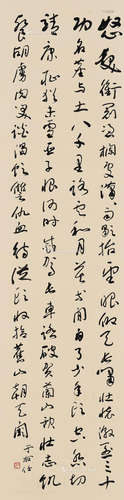 怒髮衝冠憑欄處瀟瀟雨歇抬望眼仰天長嘯壯懷激烈三十
功名塵與土八千里路雲和月莫等閒白了少年頭空悲切
靖康恥猶未雪臣子恨何時滅駕長車踏破賀蘭山缺壯志飢
餐胡虜肉笑談渴飲匈奴血待從頭收拾舊山河朝天闕
于右任